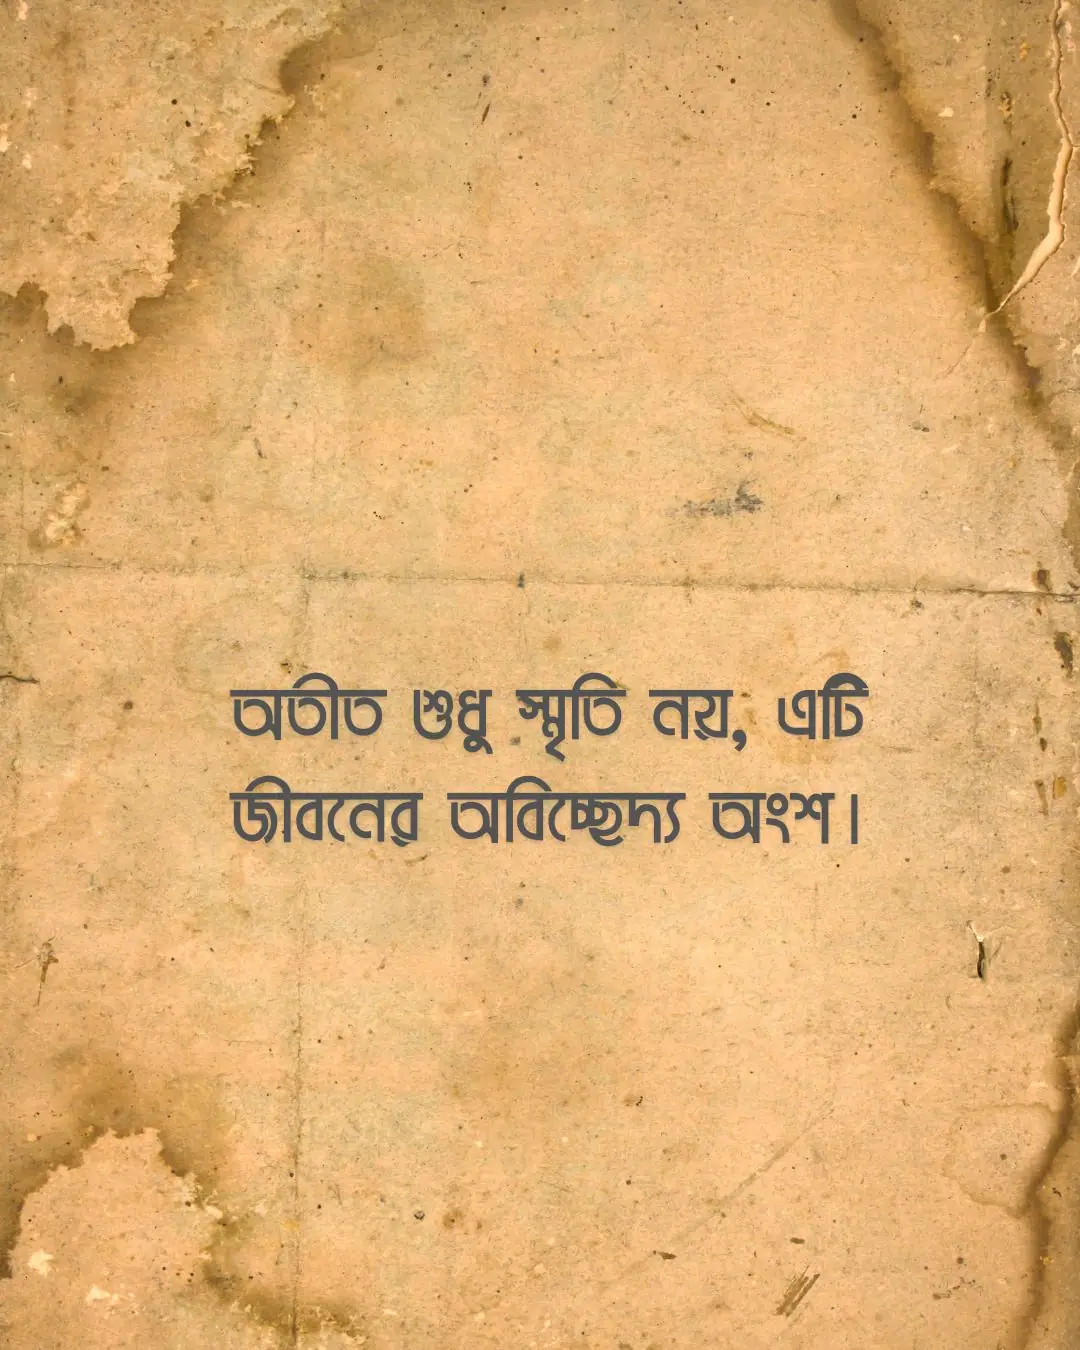 অতীত শুধু স্মৃতি নয়, এটি
জীবনের অবিচ্ছেদ্য অংশ।